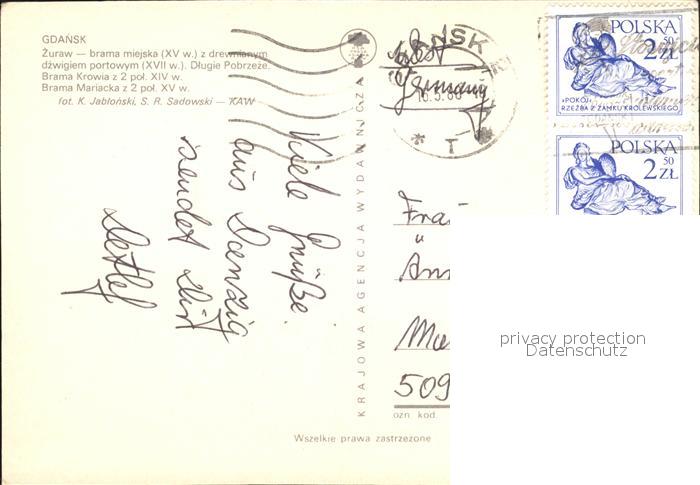 GDAŃSK
Żuraw — brama miejska (XV w.) z drewnianym
dźwigiem portowym (XVII w.). Długie Pobrzeże.
Brama Krowia z 2 poł. XIV w.
Brama Mariacka z 2 poł. XV w.
fot. K. Jabłoński, S. R. Sadowski — KAW
Viele Grüße
aus Danzig
sendet Dir
Detlef
KRAJOWA AGENCJA WYDAWNICZA
West
Germany
POLSKA
2 50 ZŁ
»POKÓJ«
RZEŹBA Z ZAMKU KRÓLEWSKIEGO
POLSKA
2 50 ZŁ
u
509
ozn kod.
Wszelkie prawa zastrzeżone
privacy protection
Datenschutz